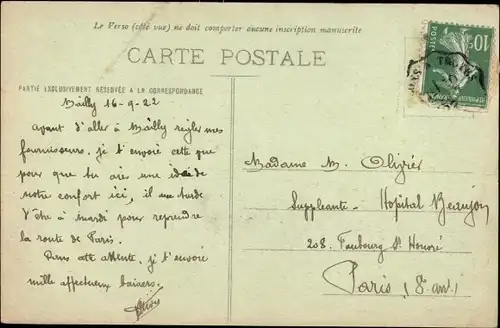 Le Verso (côté vue) ne doit comporter aucune inscription manuscrite
CARTE POSTALE
PARTIE EXCLUSIVEMENT RÉSERVÉE A LA CORRESPONDANCE
Mailly 16-9-22
Avant d'aller à Mailly régler mes
fournisseurs, je t'envoie cette que
pour que tu aies une idée de
notre confort ici, il me tarde
d'être à mardi pour reprendre
la route de Paris.
Dans cette attente, je t'envoie
mille affectueux baisers.
Madame M. Olivier
Suppléante - Hôpital Beaujon
208. Faubourg St Honoré
Paris (8e arr.)
10c
POSTES